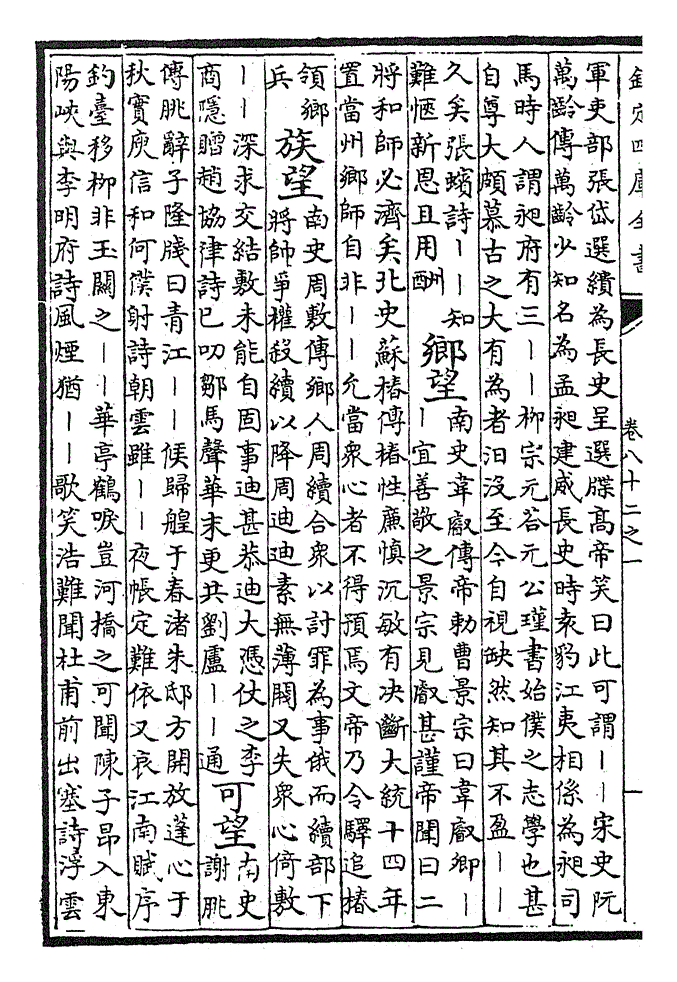 欽定四庫全書
卷八十二之一
軍吏部張岱選纉為長史呈選牒髙帝笑曰此可謂丨丨宋史阮
萬齡傳萬齡少知名為孟昶建威長史時袁豹江夷相係為昶司
馬時人謂昶府有三丨丨柳宗元荅元公瑾書始僕之志學也甚
自尊大頗慕古之大有為者汨没至今自視缺然知其不盈丨丨
久矣張蠙詩丨丨知
難愜新恩且用酬
鄉望
南史韋叡傳帝勅曹景宗曰韋叡卿丨
丨宜善敬之景宗見叡甚謹帝聞曰二
將和師必濟矣北史蘇椿傳椿性亷慎沉敏有决斷大統十四年
置當州鄉師自非丨丨允當衆心者不得預焉文帝乃令驛追椿
領鄉
兵
族望
南史周敷傳鄉人周續合衆以討罪為事俄而續部下
將帥爭權殺續以降周迪迪素無薄閥又失衆心倚敷
丨丨深求交結敷未能自固事迪甚恭迪大憑仗之李
商隱贈趙協律詩已叨鄒馬聲華末更共劉盧丨丨通
可望
南史
謝朓
傳朓辭子隆牋曰青江丨丨候歸艎于春渚朱邸方開放蓬心于
秋實庾信和何僕射詩朝雲雖丨丨夜帳定難依又哀江南賦序
釣臺移柳非玉關之丨丨華亭鶴唳豈河橋之可聞陳子昂入東
陽峽與李明府詩風煙猶丨丨歌笑浩難聞杜甫前出塞詩浮雲